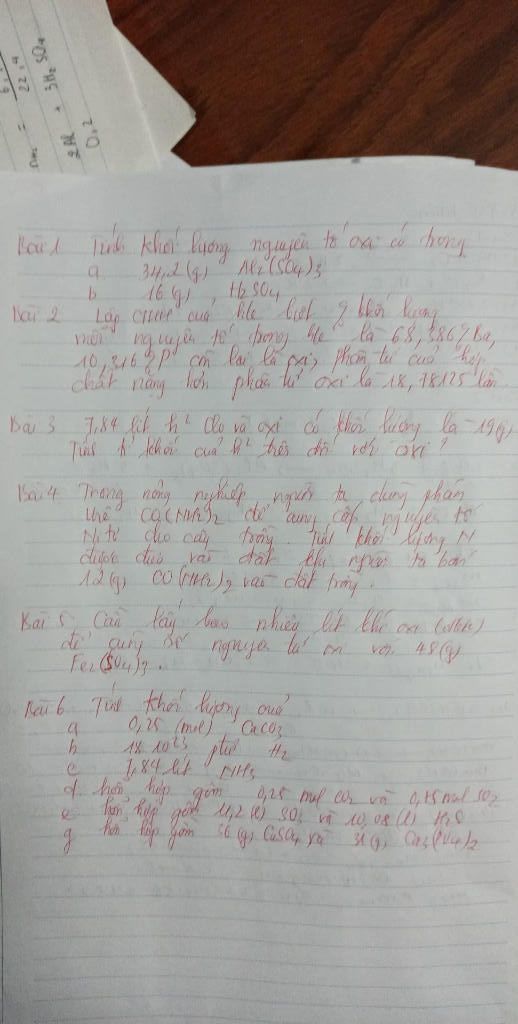 22,4
2Al + 3H2SO4
0,2
Bài 1 Tính khối lượng nguyên tố oxi có trong
a 34,2(g) Al2(SO4)3
b 16(g), H2SO4
Bài 2 Lập CTHH của biết % khối lượng
mỗi nguyên tố trong là 68,386%Ba,
10,316%P còn lại là oxi, phân tử của hợp
chất nặng hơn phân tử oxi là 18,78125 lần.
Bài 3 7,84 lít h2 và oxi có khối lượng là 19(g)
Tính tỉ khối của h2 trên đối với oxi?
Bài 4 Trong nông nghiệp người ta dùng phân
urê CO(NH2)2 để cung cấp nguyên tố
Nitơ cho cây trồng. Tính khối lượng N
được đưa vào đất khi người ta bón
12(g) CO(NH2)2 vào đất trồng.
Bài 5 Cần lấy bao nhiêu lít khí oxi (đktc)
để cùng số nguyên tử oxi với 48(g)
Fe2(SO4)3.
Bài 6 Tính khối lượng của
a 0,25 (mol) CaCO3
b 18.10^23 ptử H2
c 7,84 lít NH3
d hỗn hợp gồm 0,25 mol CO2 và 0,15 mol SO2
e hỗn hợp gồm 11,2 (l) SO3 và 10,08 (l) H2O
g hỗn hợp gồm 36(g) CuSO4 và 31(g) Ca3(PO4)2